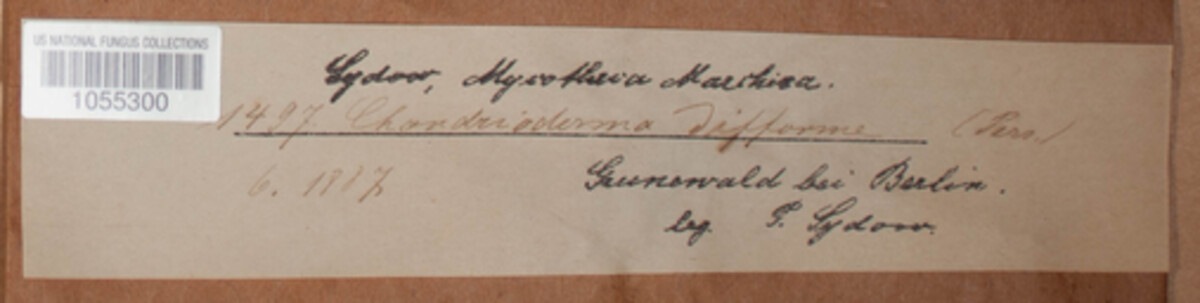 US NATIONAL FUNGUS COLLECTIONS
1055300
Sydow, Mycotheca Marchica.
1497 Chondrioderma difforme (Pers.)
6. 1887 Grunewald bei Berlin.
leg. P. Sydow.